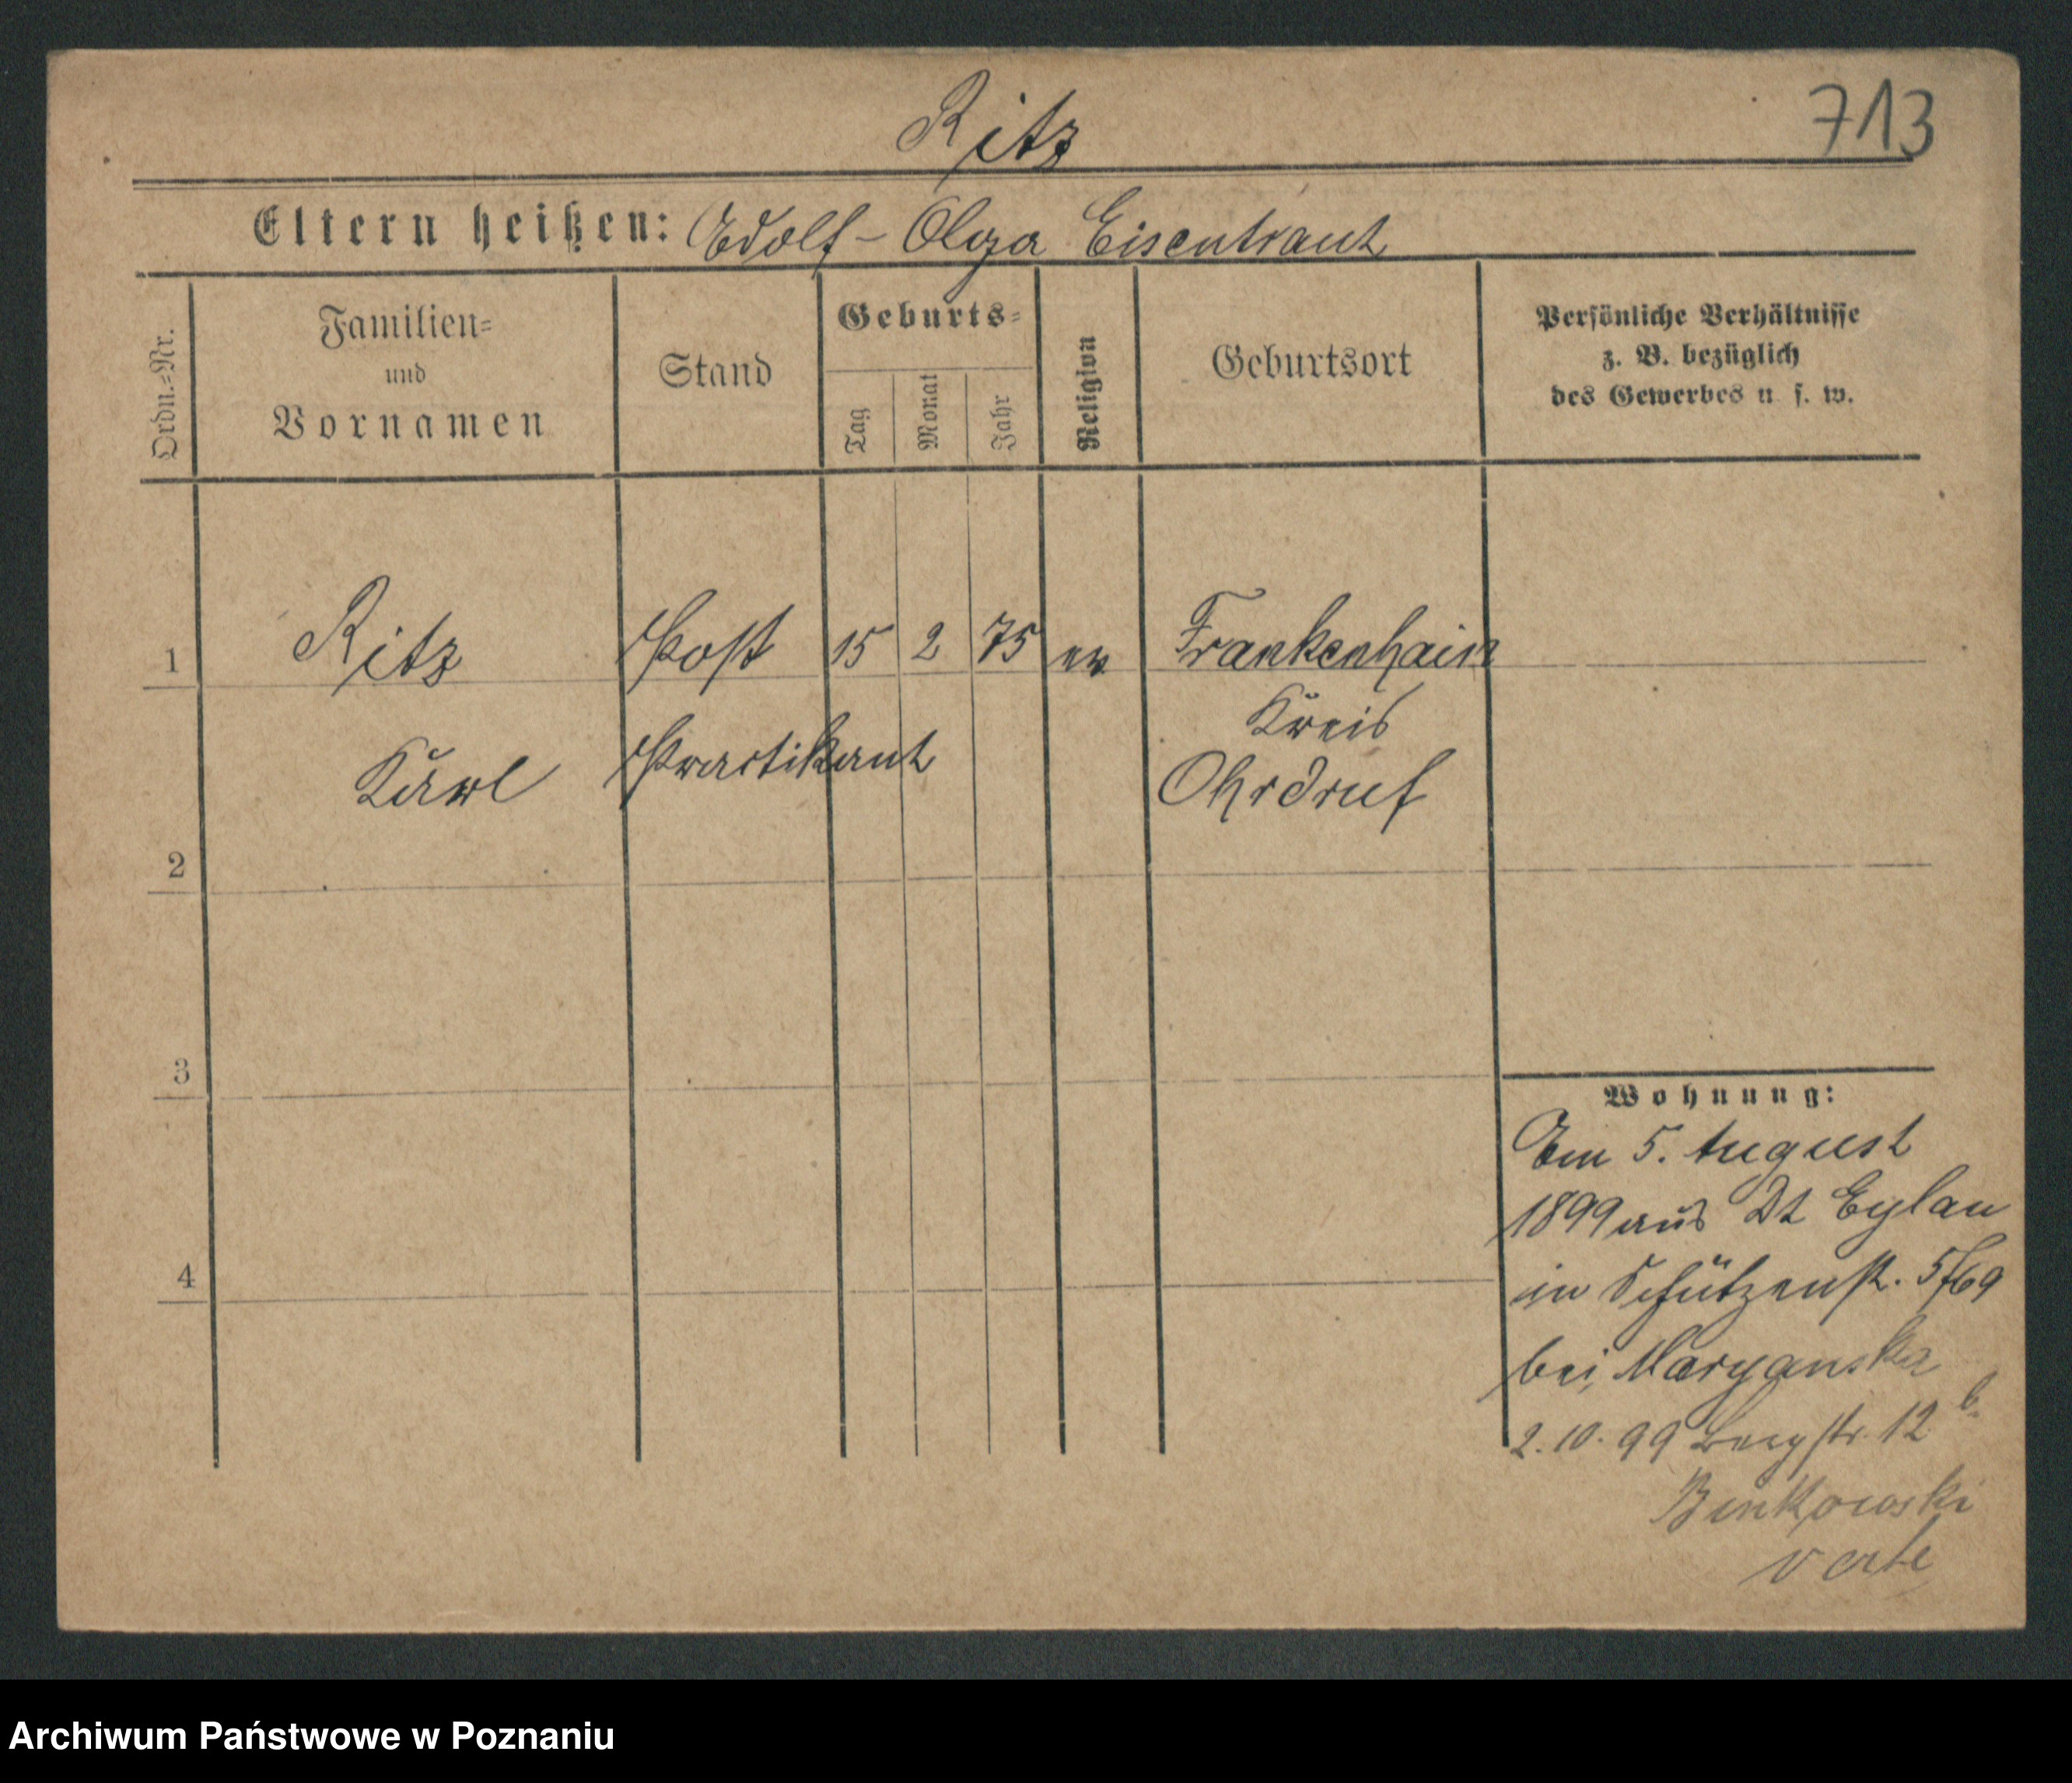 Ritz
713
Eltern heißen: Adolf - Olga Eisentraut
Ordn.=Nr.
Familien=
und
Vornamen
Stand
Geburts=
Tag
Monat
Jahr
Religion
Geburtsort
Persönliche Verhältnisse
z. B. bezüglich
des Gewerbes u. s. w.
1 Ritz Post 15 2 75 ev Frankenhain
Kreis
Karl Practikant Ohrdruf
2
3
4
Wohnung:
Am 5. August
1899 aus Dt Eylau
in Schützenstr. 5/69
bei Maryanska
2.10.99 Bergstr. 12 b.
Binkowski
verte
Archiwum Państwowe w Poznaniu